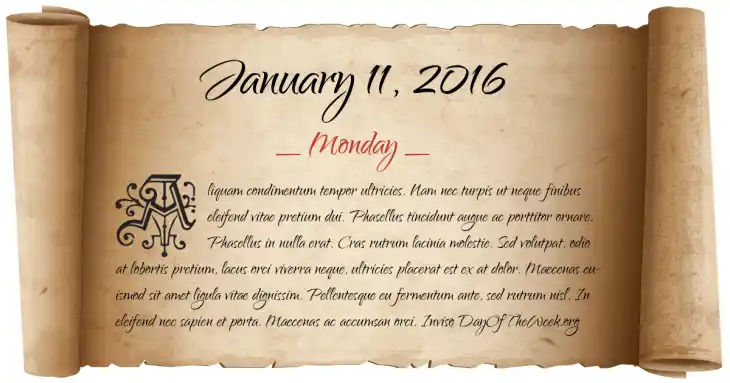 January 11, 2016
_ Monday _
Aliquam condimentum tempor ultricies. Nam nec turpis ut neque finibus
eleifend vitae pretium dui. Phasellus tincidunt augue ac porttitor ornare.
Phasellus in nulla erat. Cras rutrum lacinia molestie. Sed volutpat, odio
at lobortis pretium, lacus orci viverra neque, ultricies placerat est ex at dolor. Maecenas eu-
ismod sit amet ligula vitae dignissim. Pellentesque eu fermentum ante, sed rutrum nisl. In
eleifend nec sapien et porta. Maecenas ac accumsan orci. Inviso DayOfTheWeek.org